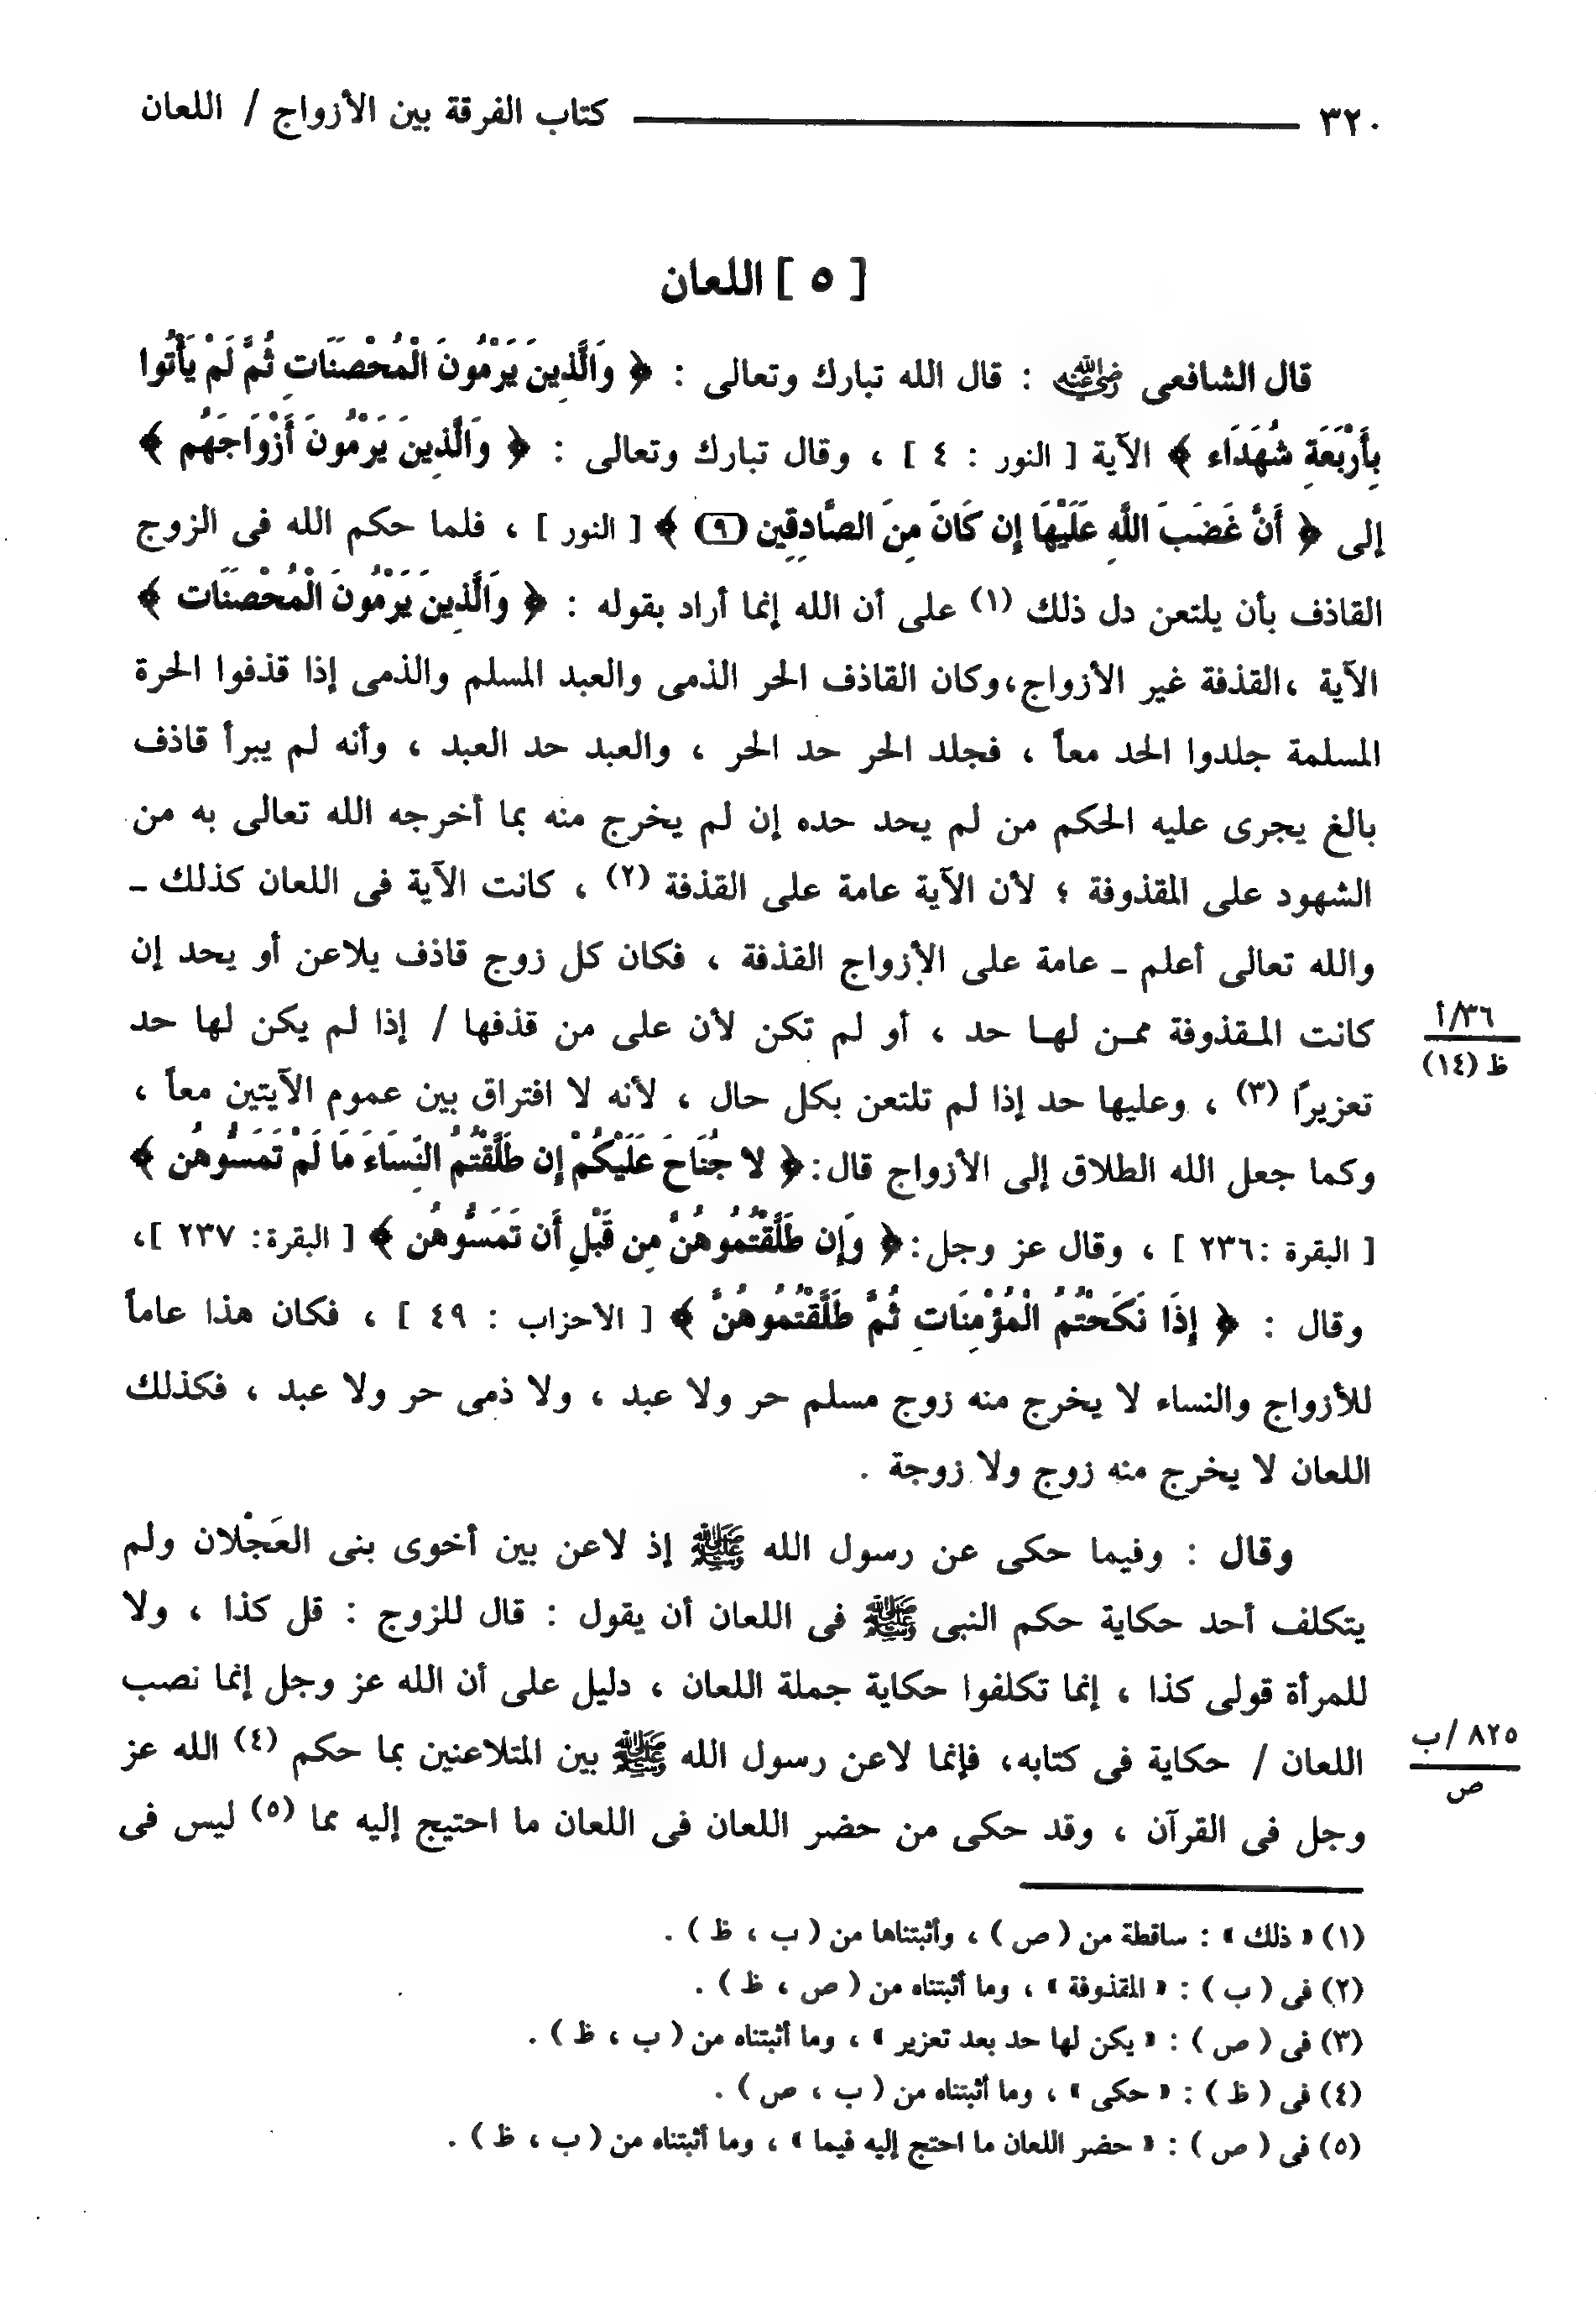 ٣٢٠ كتاب الفرقة بين الأزواج / اللعان
[ ٥ ] اللعان
قال الشافعى رضي الله عنه : قال الله تبارك وتعالى : ﴿ وَالَّذِينَ يَرْمُونَ الْمُحْصَنَاتِ ثُمَّ لَمْ يَأْتُوا
بِأَرْبَعَةِ شُهَدَاء ﴾ الآية [ النور : ٤ ] ، وقال تبارك وتعالى : ﴿ وَالَّذِينَ يَرْمُونَ أَزْوَاجَهُم ﴾
إلى ﴿ أَنَّ غَضَبَ اللَّهِ عَلَيْهَا إِن كَانَ مِنَ الصَّادِقِين (٩) ﴾ [ النور ] ، فلما حكم الله فى الزوج
القاذف بأن يلتعن دل ذلك (١) على أن الله إنما أراد بقوله : ﴿ وَالَّذِينَ يَرْمُونَ الْمُحْصَنَات ﴾
الآية ،القذفة غير الأزواج،وكان القاذف الحر الذمى والعبد المسلم والذمى إذا قذفوا الحرة
المسلمة جلدوا الحد معاً ، فجلد الحر حد الحر ، والعبد حد العبد ، وأنه لم يبرأ قاذف
بالغ يجرى عليه الحكم من لم يحد حده إن لم يخرج منه بما أخرجه الله تعالى به من
الشهود على المقذوفة ؛ لأن الآية عامة على القذفة (٢) ، كانت الآية فى اللعان كذلك ـ
والله تعالى أعلم ـ عامة على الأزواج القذفة ، فكان كل زوج قاذف يلاعن أو يحد إن
كانت المقذوفة ممـن لهـا حد ، أو لم تكن لأن على من قذفها / إذا لم يكن لها حد
٣٦/أ
ظ (١٤)
تعزيرًا (٣) ، وعليها حد إذا لم تلتعن بكل حال ، لأنه لا افتراق بين عموم الآيتين معاً ،
وكما جعل الله الطلاق إلى الأزواج قال:﴿ لا جُنَاحَ عَلَيْكُمْ إِن طَلَّقْتُمُ النِّسَاءَ مَا لَمْ تَمَسُّوهُن ﴾
[ البقرة :٢٣٦ ] ، وقال عز وجل:﴿ وَإِن طَلَّقْتُمُوهُنَّ مِن قَبْلِ أَن تَمَسُّوهُن ﴾ [ البقرة: ٢٣٧ ]،
وقال : ﴿ إِذَا نَكَحْتُمُ الْمُؤْمِنَاتِ ثُمَّ طَلَّقْتُمُوهُنَّ ﴾ [ الأحزاب : ٤٩ ] ، فكان هذا عاماً
للأزواج والنساء لا يخرج منه زوج مسلم حر ولا عبد ، ولا ذمى حر ولا عبد ، فكذلك
اللعان لا يخرج منه زوج ولا زوجة .
وقال : وفيما حكى عن رسول الله ﷺ إذ لاعن بين أخوى بنى العَجْلان ولم
يتكلف أحد حكاية حكم النبى ﷺ فى اللعان أن يقول : قال للزوج : قل كذا ، ولا
للمرأة قولى كذا ، إنما تكلفوا حكاية جملة اللعان ، دليل على أن الله عز وجل إنما نصب
اللعان / حكاية فى كتابه، فإنما لاعن رسول الله ﷺ بين المتلاعنين بما حكم (٤) الله عز
٨٢٥ /ب
ص
وجل فى القرآن ، وقد حكى من حضر اللعان فى اللعان ما احتيج إليه مما (٥) ليس فى
(١) « ذلك » : ساقطة من ( ص ) ، وأثبتناها من ( ب ، ظ ) .
(٢) فى ( ب ) : « المقذوفة » ، وما أثبتناه من ( ص ، ظ ) .
(٣) فى ( ص ) : « يكن لها حد بعد تعزير » ، وما أثبتناه من ( ب ، ظ ) .
(٤) فى ( ظ ) : « حكى » ، وما أثبتناه من ( ب ، ص ) .
(٥) فى ( ص ) : « حضر اللعان ما احتج إليه فيما » ، وما أثبتناه من ( ب ، ظ ) .